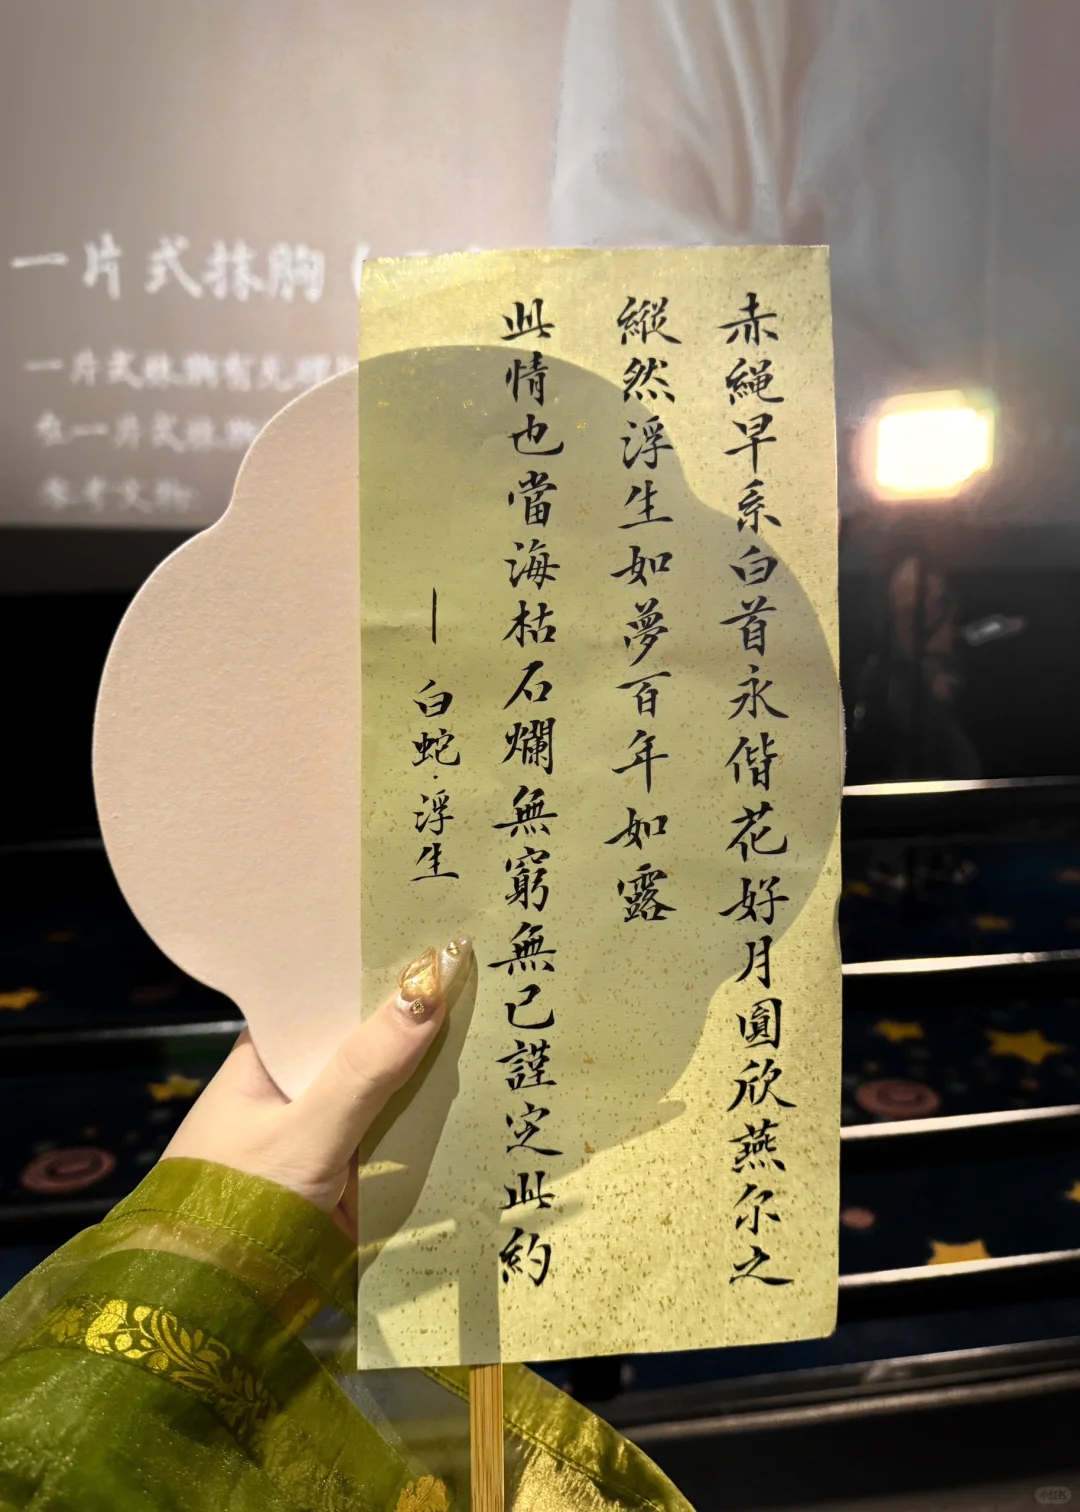 赤繩早系白首永偕花好月圓欣燕尔之
縱然浮生如夢百年如露
此情也當海枯石爛無窮無已謹定此約
—白蛇·浮生
一片式抹胸
一片式抹胸有
在一片式抹胸
参考文物:
小红书